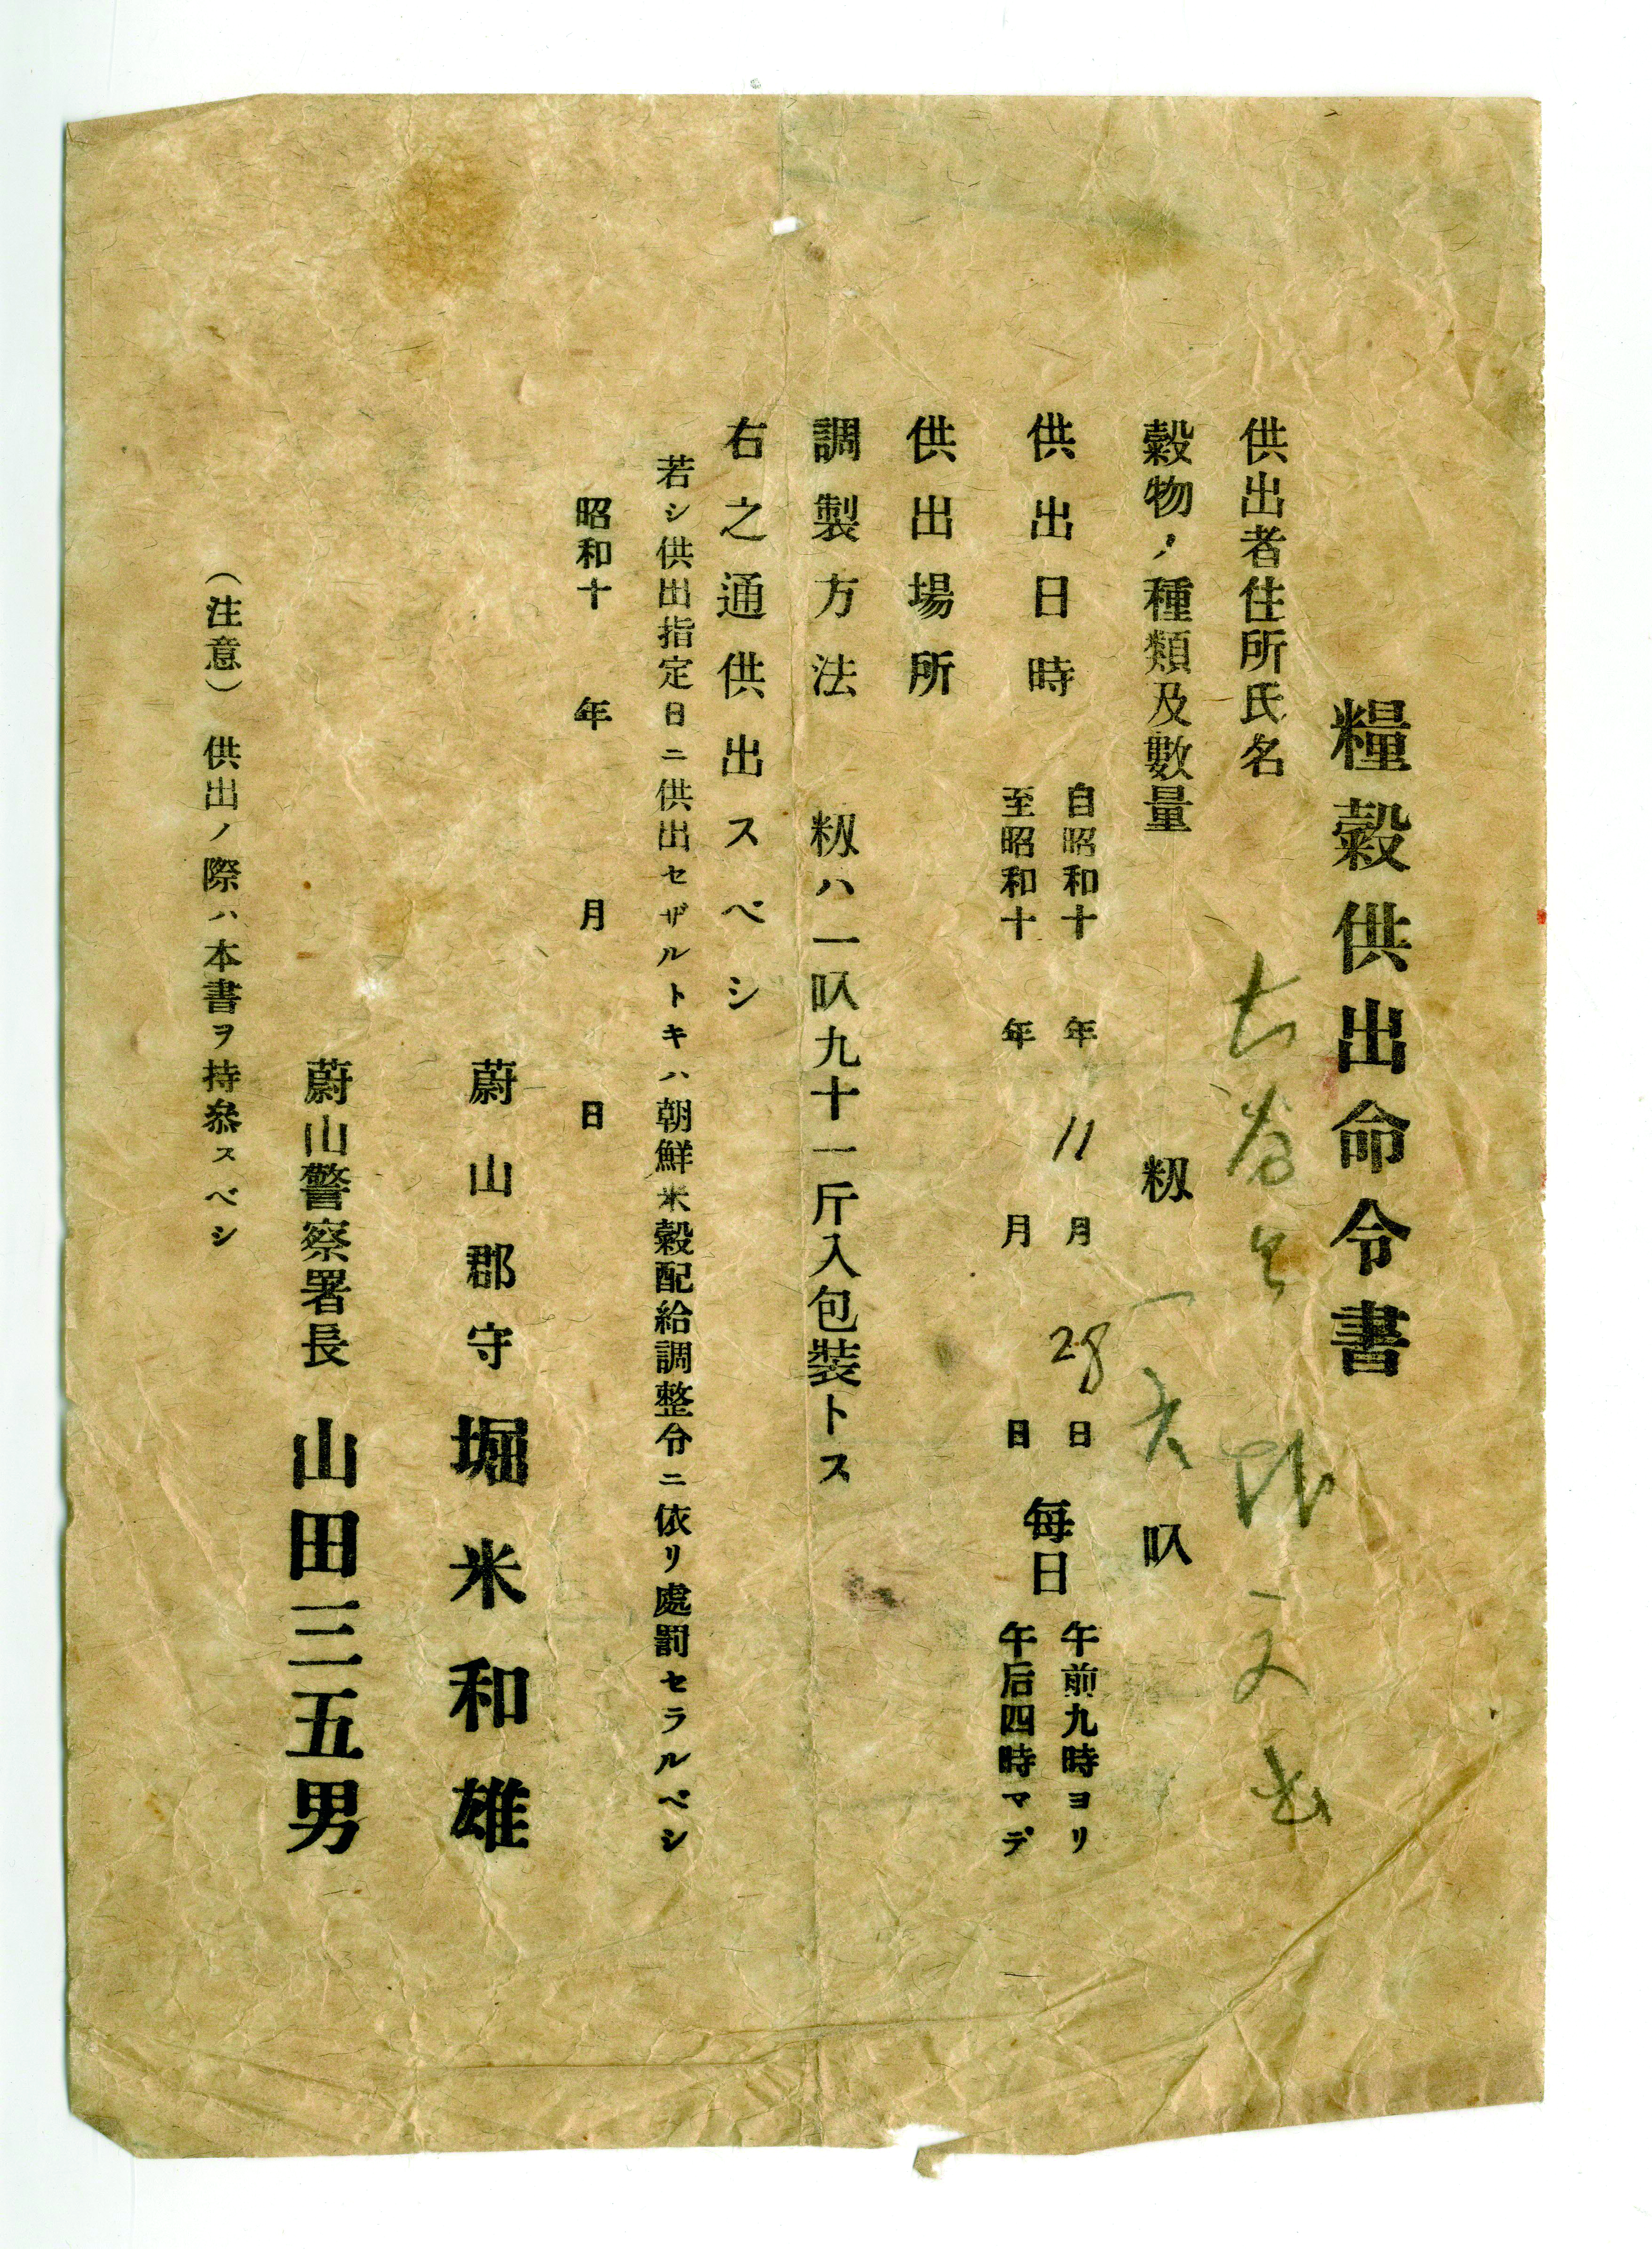 糧穀供出命令書
供出者住所氏名
穀物ノ種類及數量 籾 叺
供出日時 自昭和十 年 11 月 28 日 每日 午前九時ヨリ
至昭和十 年 月 日 午后四時マデ
供出場所
調製方法 籾ハ一叺九十一斤入包裝トス
右之通供出スベシ
若シ供出指定日ニ供出セザルトキハ朝鮮米穀配給調整令ニ依リ處罰セラルベシ
昭和十 年 月 日
蔚山郡守 堀米和雄
蔚山警察署長 山田三五男
(注意) 供出ノ際ハ本書ヲ持參スベシ